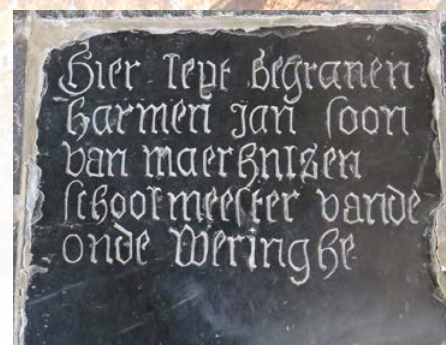 Hier leyt Begraven
harmen Jan soon
van maerhuizen
schoolmeester vande
oude Weringhe